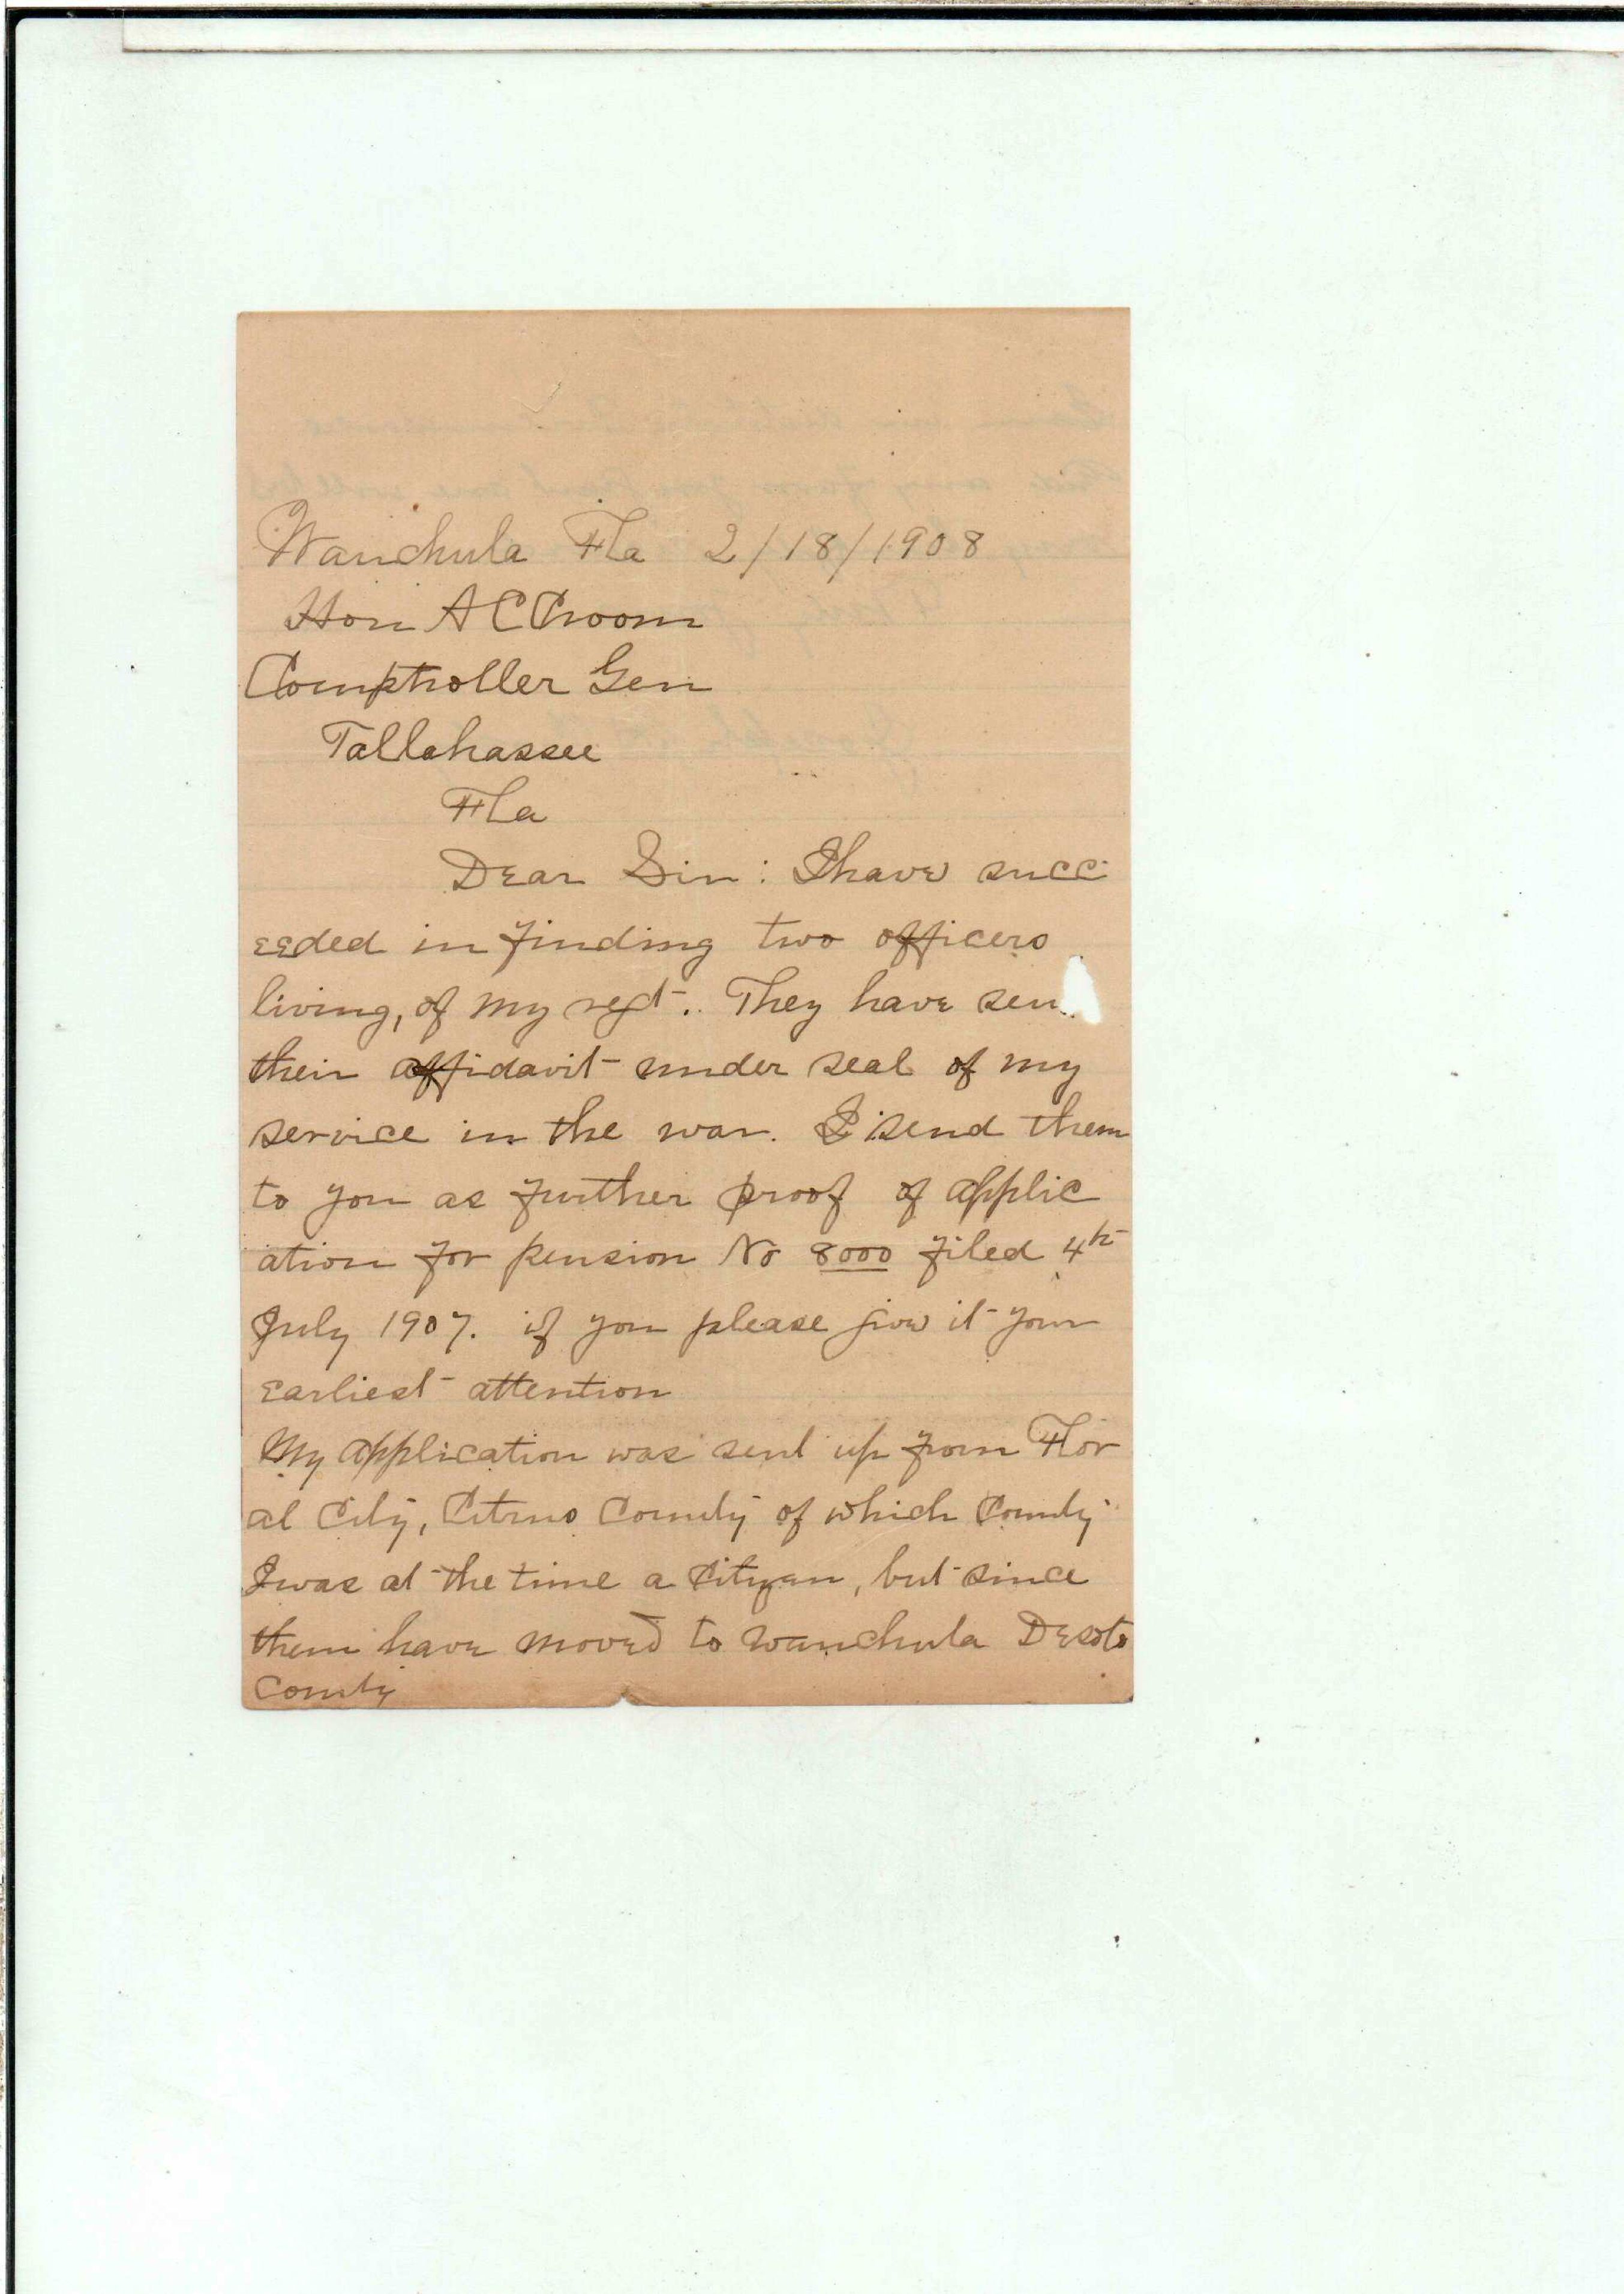 Wauchula Fla 2/18/1908
Hon A C Croom
Comptroller Gen
Tallahassee
Fla
Dear Sir: I have succ
eeded in finding two officers
living, of my regt. They have sen
their affidavit under seal of my
service in the war. I send them
to you as further proof of applic
ation for pension No 8000 filed 4th
July 1907. if you please give it your
earliest attention
My application was sent up from Flor
al City, Citrus County of which County
I was at the time a Cityzen, but since
them have moved to Wauchula Desoto
County